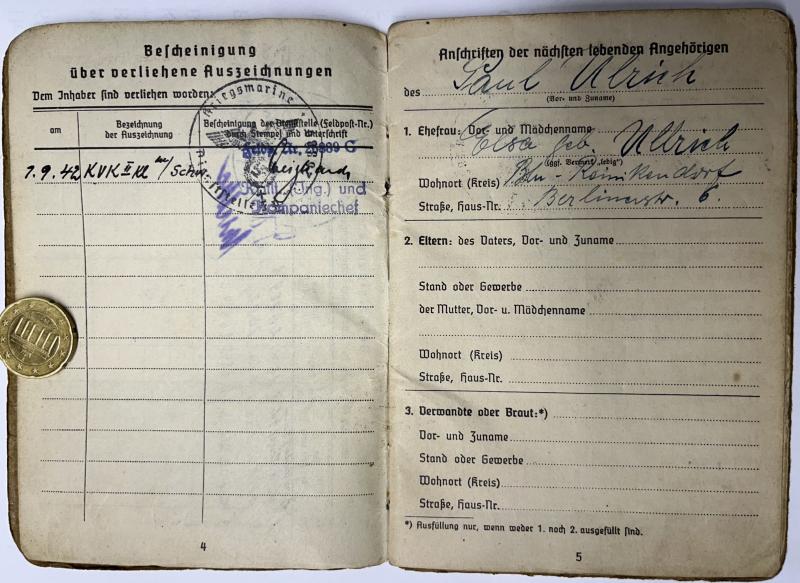 Bescheinigung
über verliehene Auszeichnungen
Dem Inhaber sind verliehen worden:
am
Bezeichnung
der Auszeichnung
Bescheinigung der Dienststelle (Feldpost-Nr.)
durch Stempel und Unterschrift
Kriegsmarine
7.9.42 KVK II Kl m/Schw.
(Ing.) und
Kompaniechef
4
Anschriften der nächsten lebenden Angehörigen
des Paul Ulrich
(Vor- und Zuname)
1. Ehefrau: Vor- und Mädchenname
Elsa geb. Ullrich
(ggf. Vermerk „ledig“)
Wohnort (Kreis) Bln-Reinikendorf
Straße, Haus-Nr. Berlinerstr. 6.
2. Eltern: des Vaters, Vor- und Zuname
Stand oder Gewerbe
der Mutter, Vor- u. Mädchenname
Wohnort (Kreis)
Straße, Haus-Nr.
3. Verwandte oder Braut:*)
Vor- und Zuname
Stand oder Gewerbe
Wohnort (Kreis)
Straße, Haus-Nr.
*) Ausfüllung nur, wenn weder 1. noch 2. ausgefüllt sind.
5